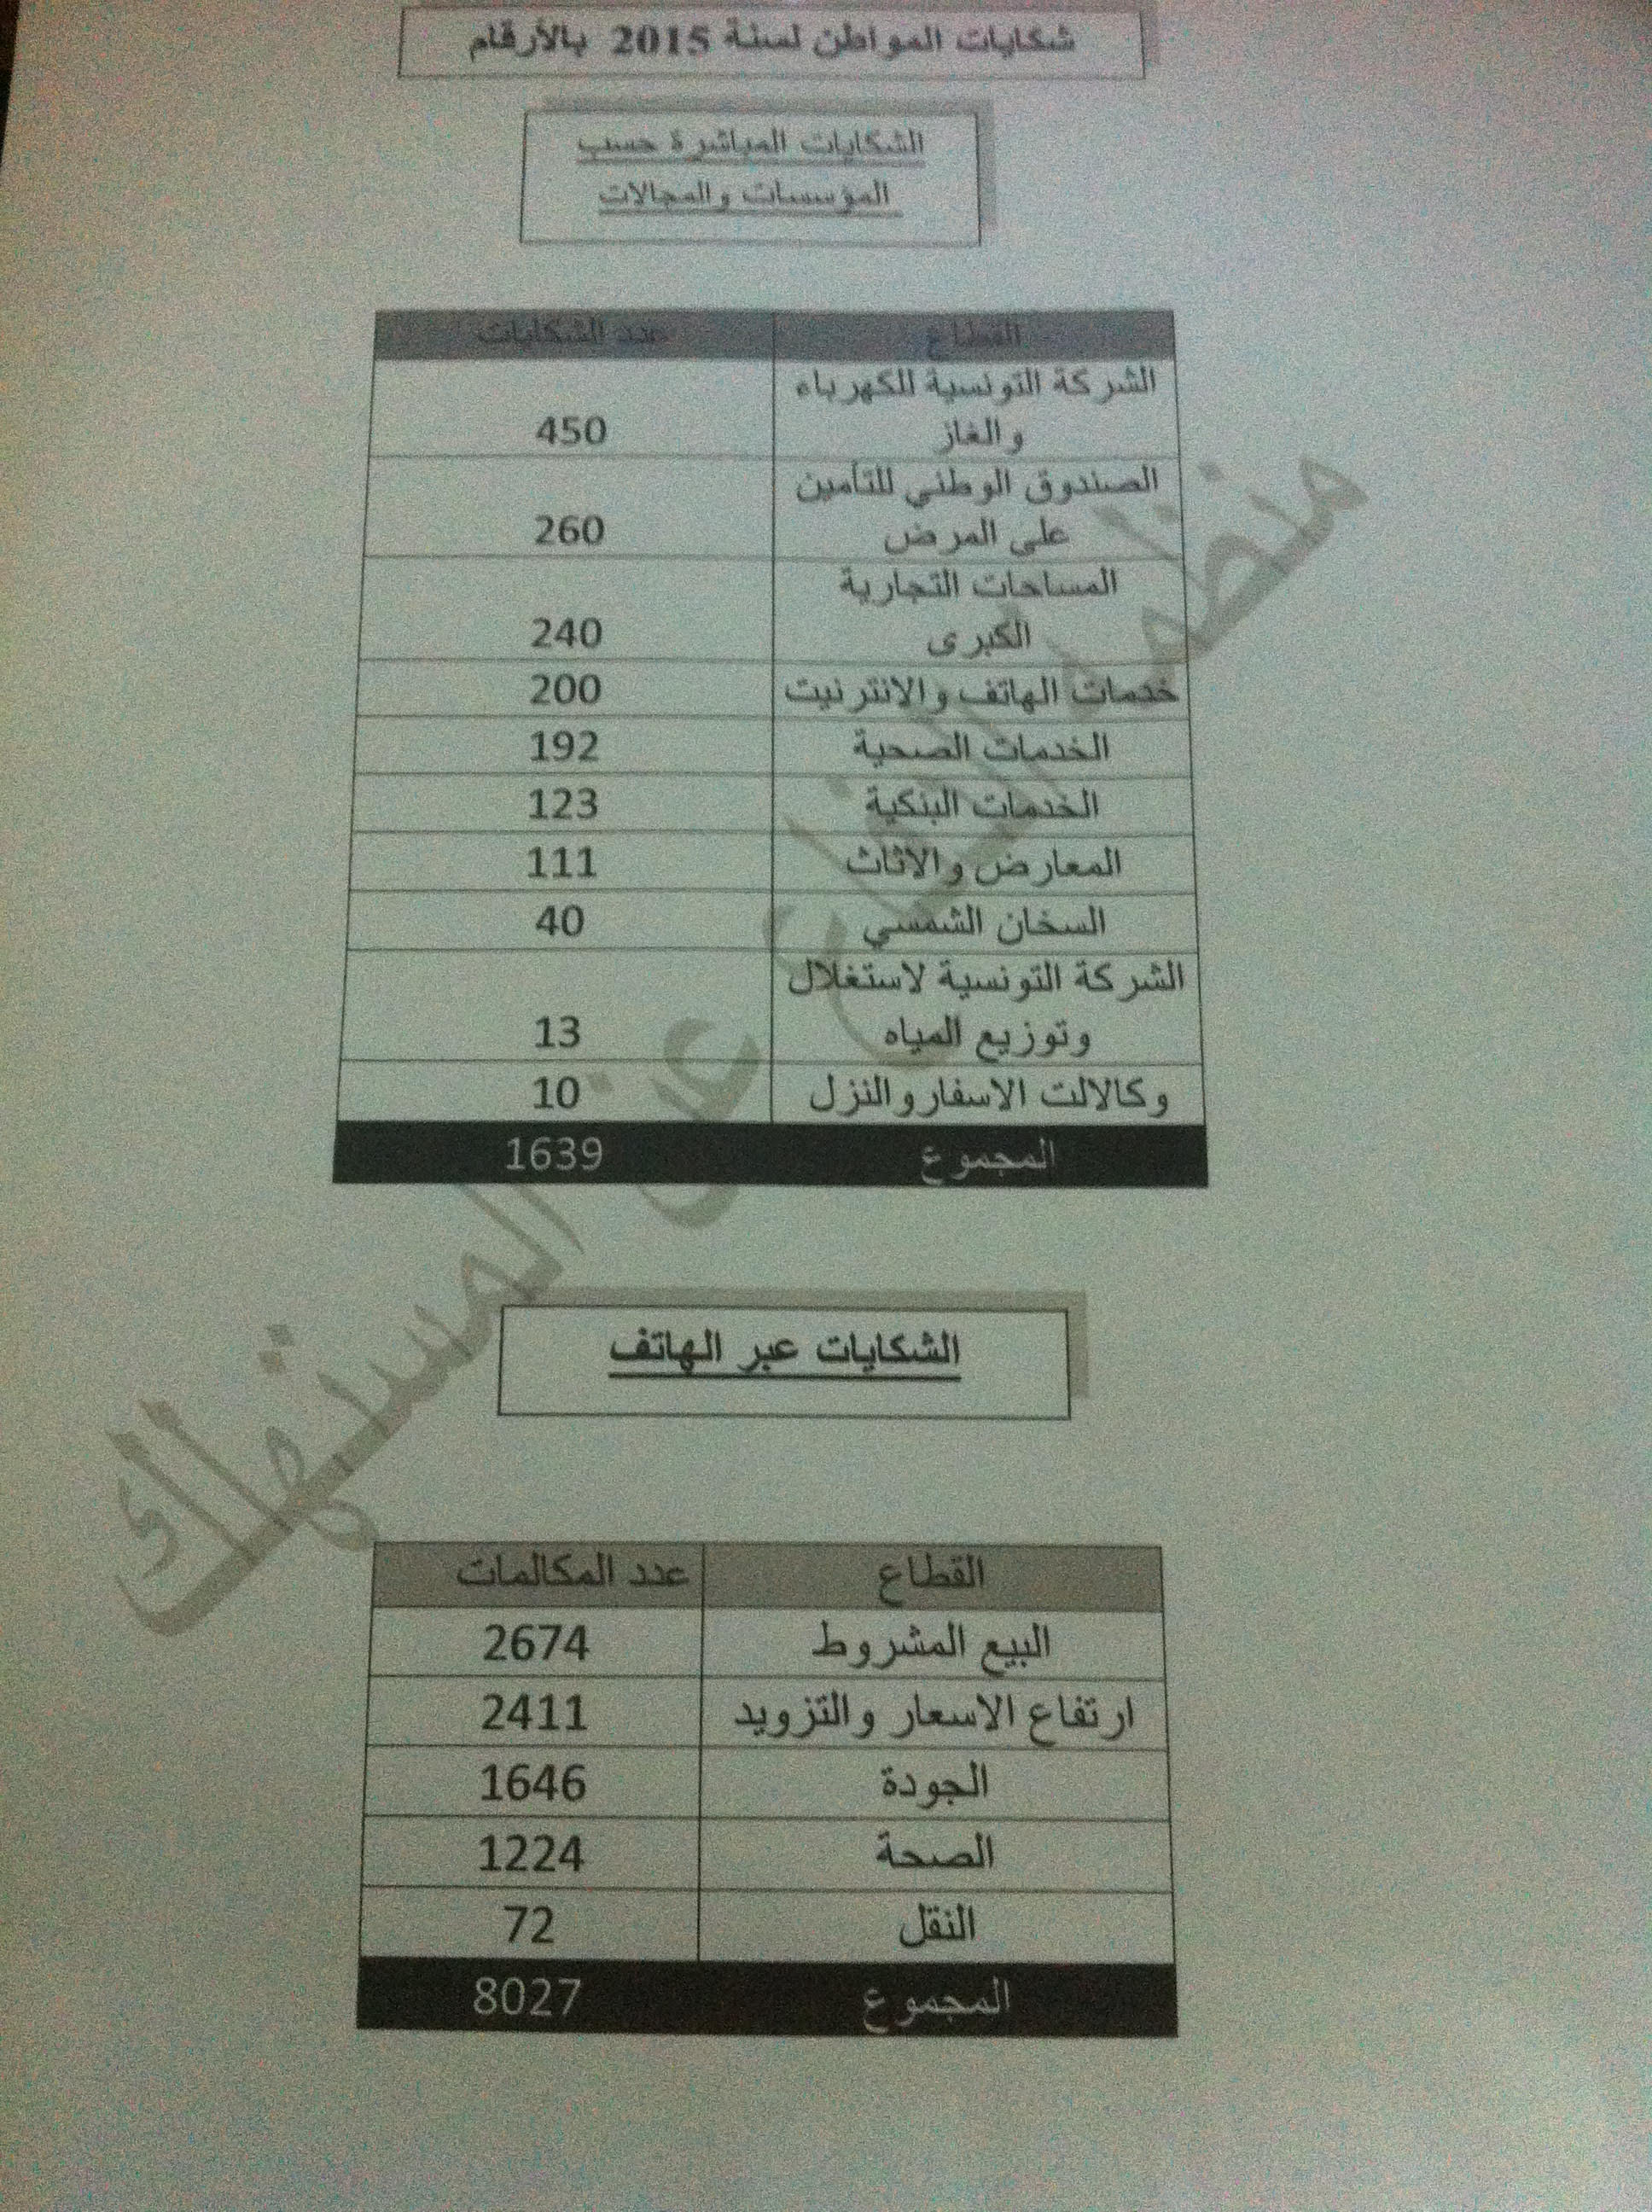 شكايات المواطن لسنة 2015 بالأرقام
الشكايات المباشرة حسب
المؤسسات والمجالات
القطاع عدد الشكايات
الشركة التونسية للكهرباء
والغاز 450
الصندوق الوطني للتأمين
على المرض 260
المساحات التجارية
الكبرى 240
خدمات الهاتف والانترنيت 200
الخدمات الصحية 192
الخدمات البنكية 123
المعارض والاثاث 111
السخان الشمسي 40
الشركة التونسية لاستغلال
وتوزيع المياه 13
وكالالت الاسفار والنزل 10
المجموع 1639
الشكايات عبر الهاتف
القطاع عدد المكالمات
البيع المشروط 2674
ارتفاع الاسعار والتزويد 2411
الجودة 1646
الصحة 1224
النقل 72
المجموع 8027
منظمة الدفاع عن المستهلك